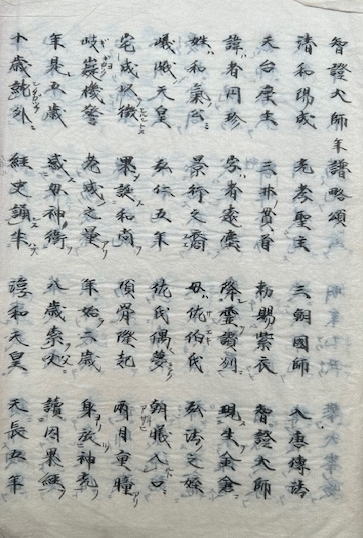 智證大師年譜略頌
清和陽成 光孝聖主 三朝國師 入唐傳法
天台座主 三井貫首 勅賜紫衣 智證大師
諱者円珍 字者遠塵 降靈讃列 現生金倉
姓和氣公 景行之裔 母佐伯氏 弘法之姪
嵯峨天皇 弘仁五年 佐氏偶夢 朝暾入口
宅成以徴 果誕和尚 頂骨隆起 兩目重瞳
岐嶷機警 老成之量 年始二歳 身放神光
年甫五歳 感母神衛 八歳索父 讀因果經
十歳純外 經史誦半 淳和天皇 天長五年